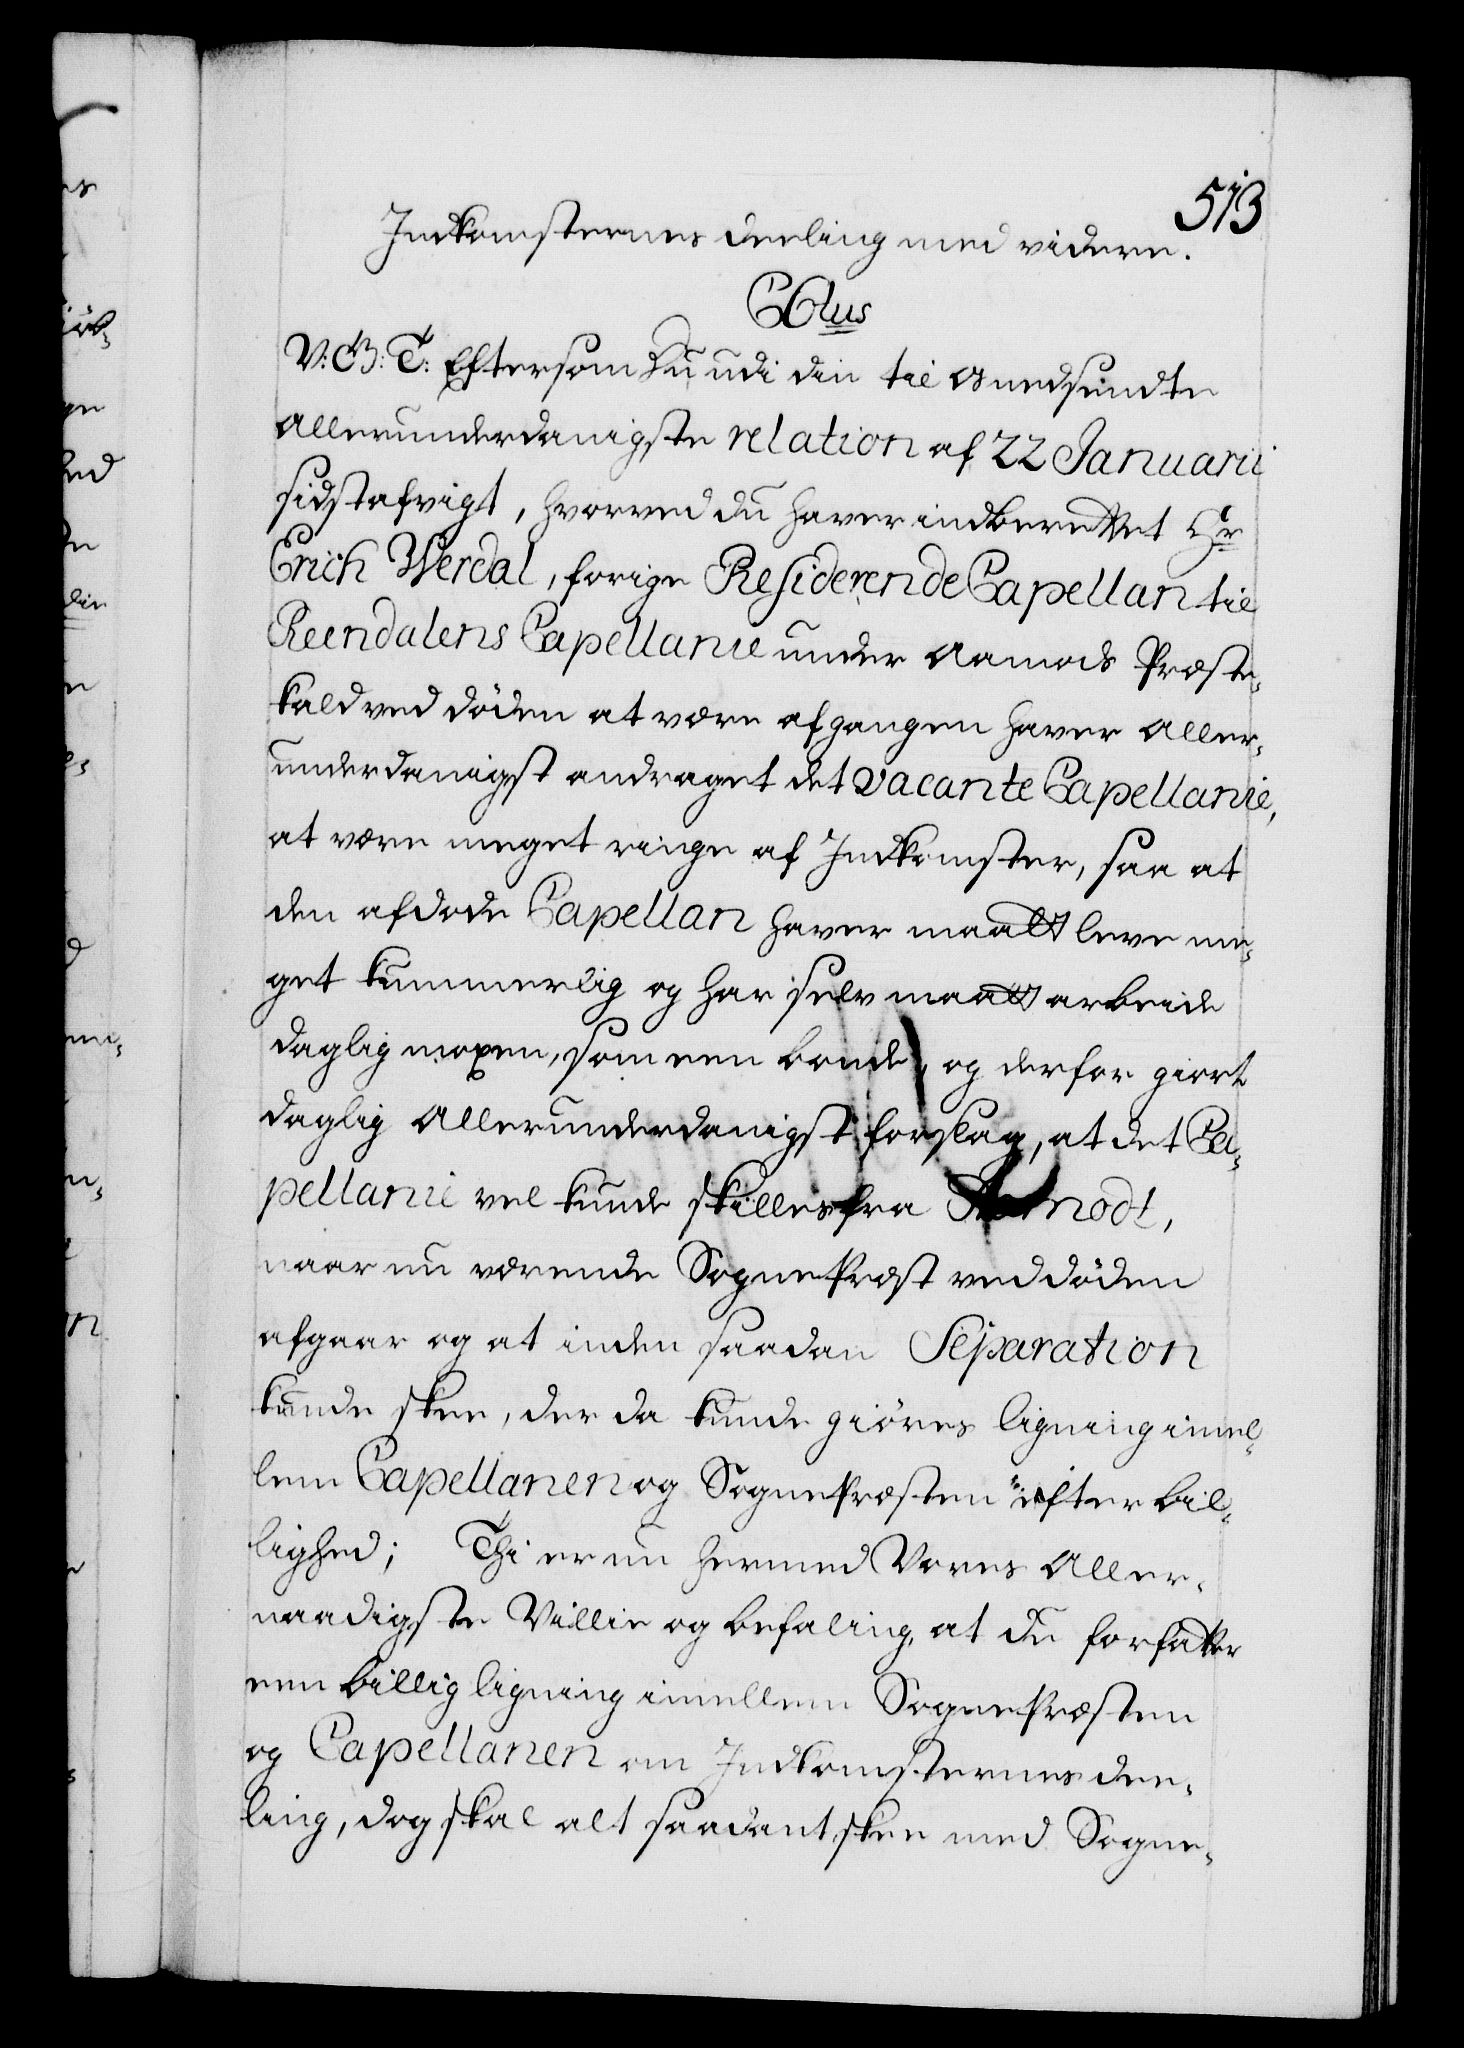 513
Indkomsternes deeling med videre.
CXtus
V: G: T: Eftersom du udi din til Os nedsendte
allerunderdanigste relation af 22 Januarii
sidst afvigt, hvorved du haver indberettet Hr
Erich Werdal, forige Residerende Capellan til
Reendalens Capellanie under Aamods Præste-
kald ved døden at være afgangen haver aller-
underdanigst andraget det vacante Capellanie,
at være meget ringe af Indkomster, saa at
den afdøde Capellan haver maatt leve me-
get kummerlig og har selv maatt arbeide
daglig moxen, som een bonde, og derfor giort
daglig allerunderdanigst forslag, at det Ca-
pellanie vel kunde skilles fra Aamodt,
naar nu værende SognePræst ved døden
afgaar og at inden saadan Separation
kunde skee, der da kunde giöres ligning imel-
lem Capellanen og SognePræsten efter bil-
lighed; Thi er nu hermed Vores aller-
naadigste Villie og befaling, at du forfatter
een billig ligning imellem SognePræsten
og Capellanen om Indkomsternes dee-
ling, dog skal alt saadant skee med Sogne-